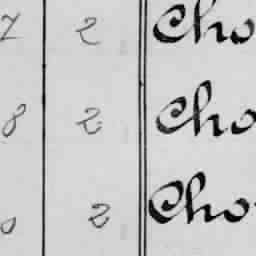 7 2 Cho
8 2 Cho
2 Cho